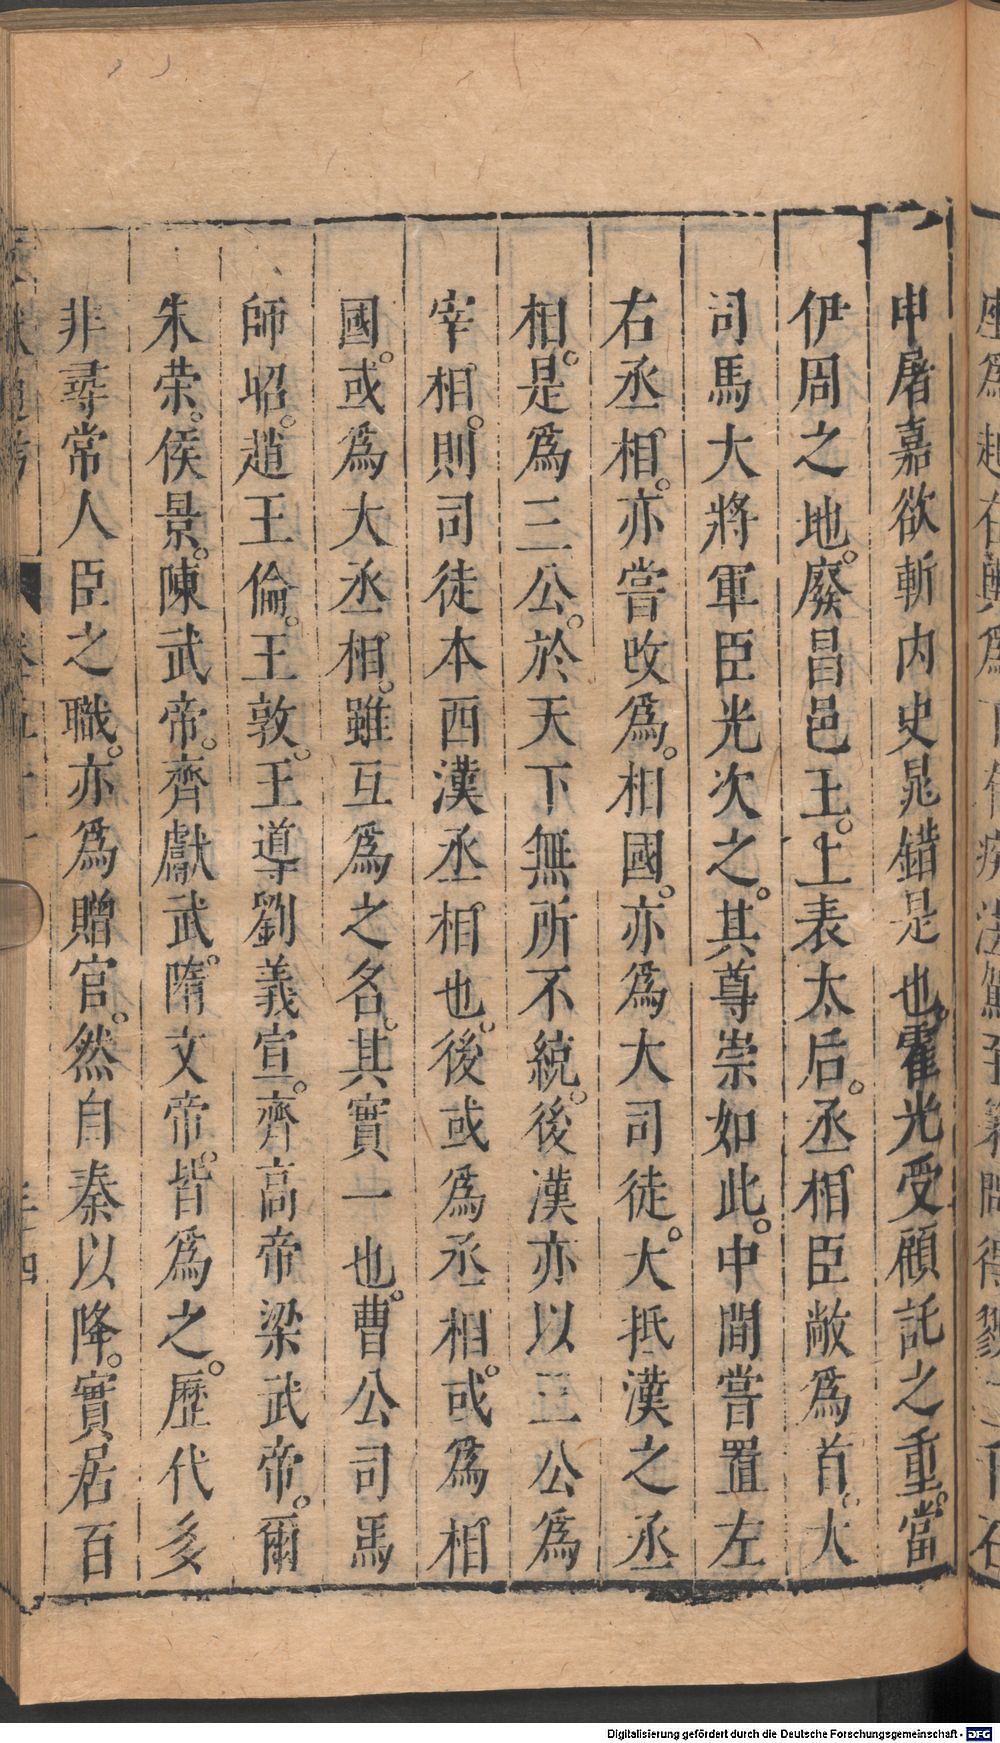 申屠嘉欲斬内史晁錯是也。霍光受顧託之重。當
伊周之地。廢昌邑王。上表太后。丞相臣敞爲首。大
司馬大將軍臣光次之。其尊崇如此。中間嘗置左
右丞相。亦嘗改爲。相國。亦爲大司徒。大抵漢之丞
相。是爲三公。於天下無所不統。後漢亦以三公爲
宰相。則司徒本西漢丞相也。後或爲丞相。或爲相
國。或爲大丞相。雖互爲之名。其實一也。曹公司馬
師昭。趙王倫。王敦。王導劉義宣。齊高帝梁武帝。爾
朱荣。侯景。陳武帝。齊獻武。隋文帝。皆爲之。歷代多
非尋常人臣之職。亦爲贈官。然自秦以降。實居百
Digitalisierung gefördert durch die Deutsche Forschungsgemeinschaft - DFG